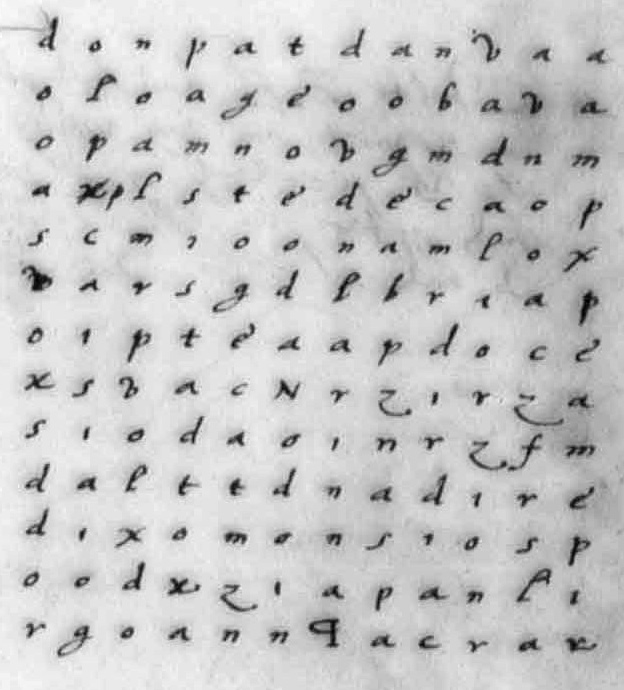 d o n p a t d a n v a a
o l o a g e o o b a v a
o p a m n o v g m d n m
a x p l s t e d e c a o p
s c m i o o n a m l o x
v a r s g d l b r i a p
o i p t e a a p d o c e
x s v a c N r z i r z a
s i o d a o i n r z f m
d a l t t d n a d i r e
d i x o m o n s i o s p
o o d x z i a p a n l i
r g o a n n q a c r a x